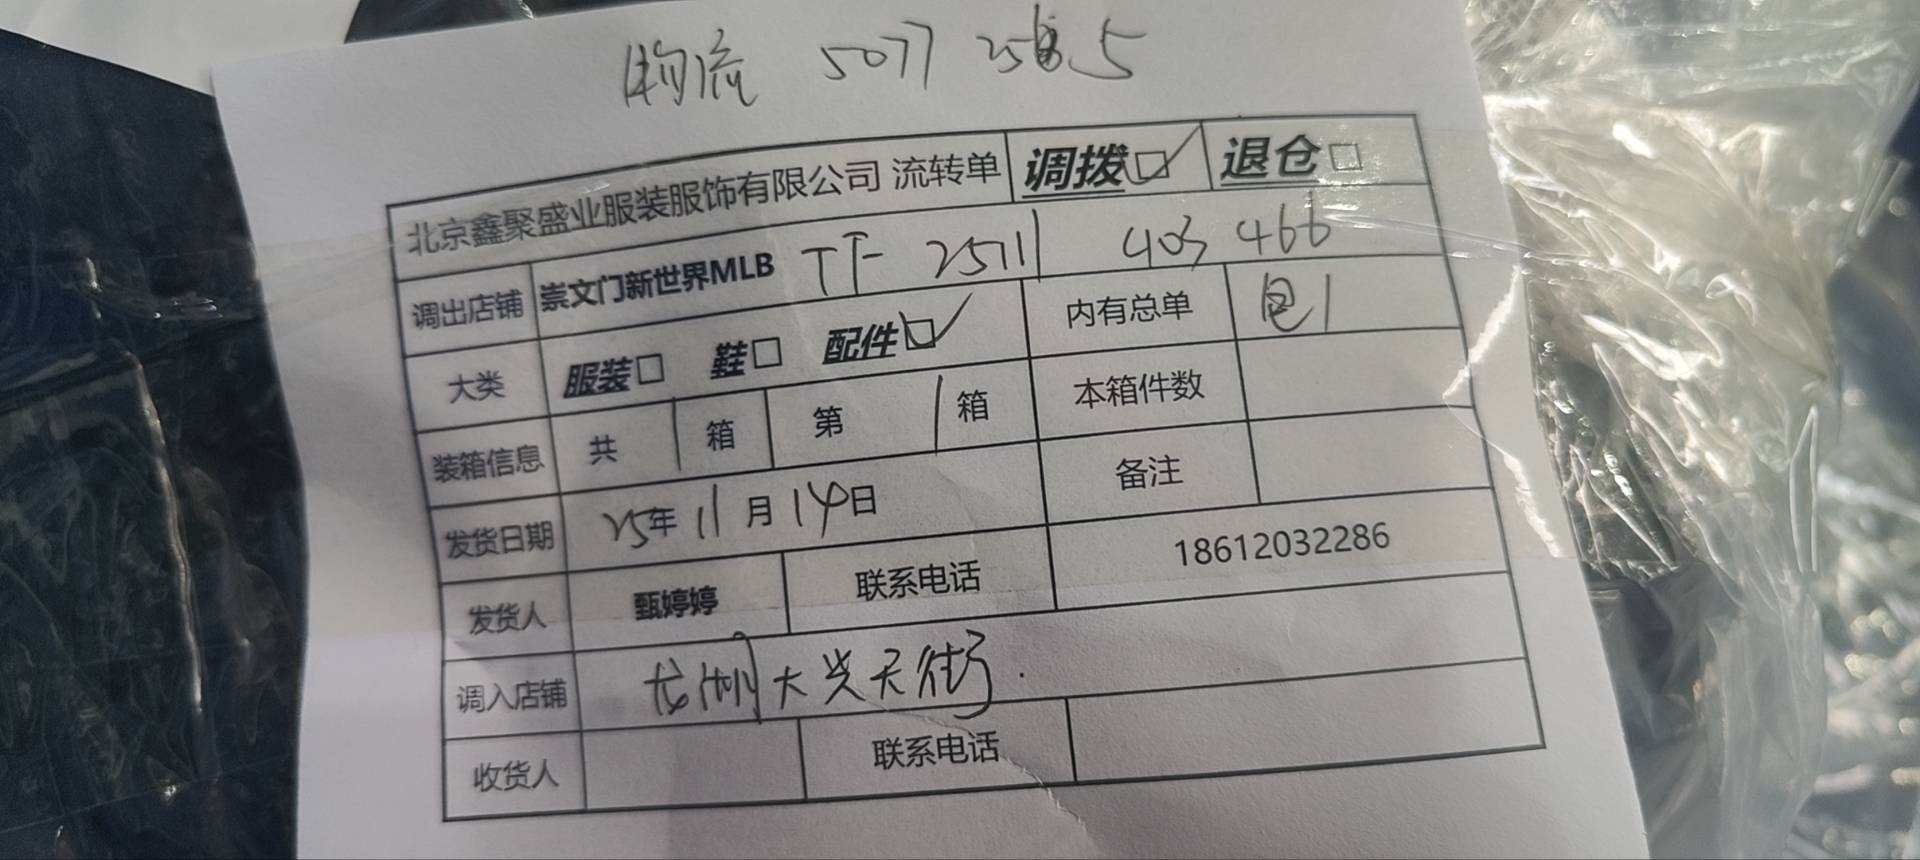 物流 5077 2585
北京鑫聚盛业服装服饰有限公司 流转单 调拨☑ 退仓□
调出店铺 崇文门新世界MLB TF 2511 403 466
大类 服装□ 鞋□ 配件☑ 内有总单 包1
装箱信息 共 1 箱 第 1 箱 本箱件数
发货日期 25年11月14日 备注
发货人 甄婷婷 联系电话 18612032286
调入店铺 龙湖大兴天街.
收货人 联系电话